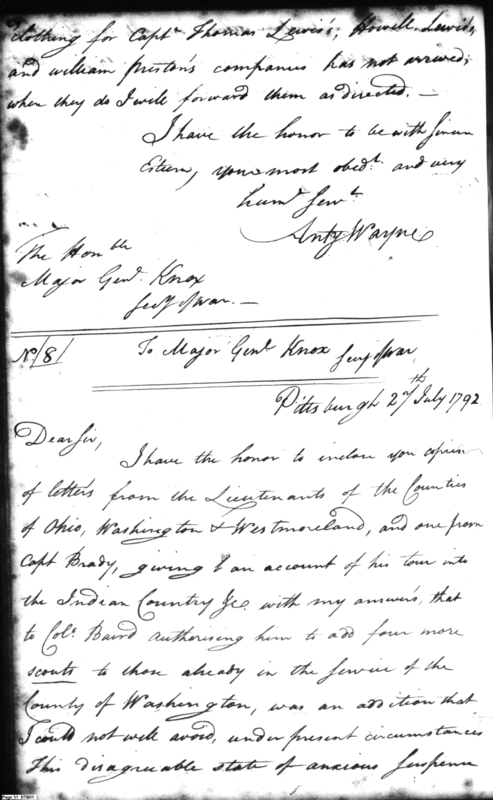 clothing for Capt. Thomas Lewis's, Howell Lewis's,
and william Preston's companies has not arrived;
when they do I will forward them as directed. —
I have the honor to be with sincere
Esteem, your most obedt. and very
humb Servt.
Anty Wayne
The Honble
Major Genl. Knox
Secy of War. —
No/8/
To Major Genl Knox Secy of War
Pittsburgh 27th July 1792
Dear Sir,
I have the honor to inclose you copies
of letters from the Lieutenants of the Counties
of Ohio, Washington & Westmoreland, and one from
Capt Brady, giving an account of his tour into
the Indian Country &c. with my answers, that
to Colo. Baird authorising him to add four more
scouts to those already in the service of the
County of Washington, was an addition that
I could not well avoid, under present circumstances
This disagreeable state of anxious suspence